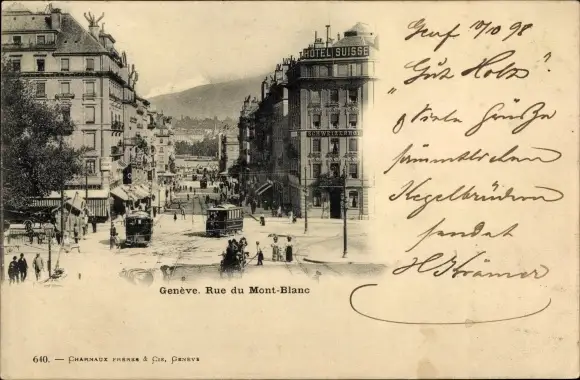 HOTEL SUISSE
SCHWEIZERHOF
Genf 10/10 98
"Gut Holz"?
Viele Grüße
sämmtlichen
Kegelbrüdern
sendet
H. Krämer
Genève. Rue du Mont-Blanc
640. — CHARNAUX FRÈRES & CIE, GENÈVE